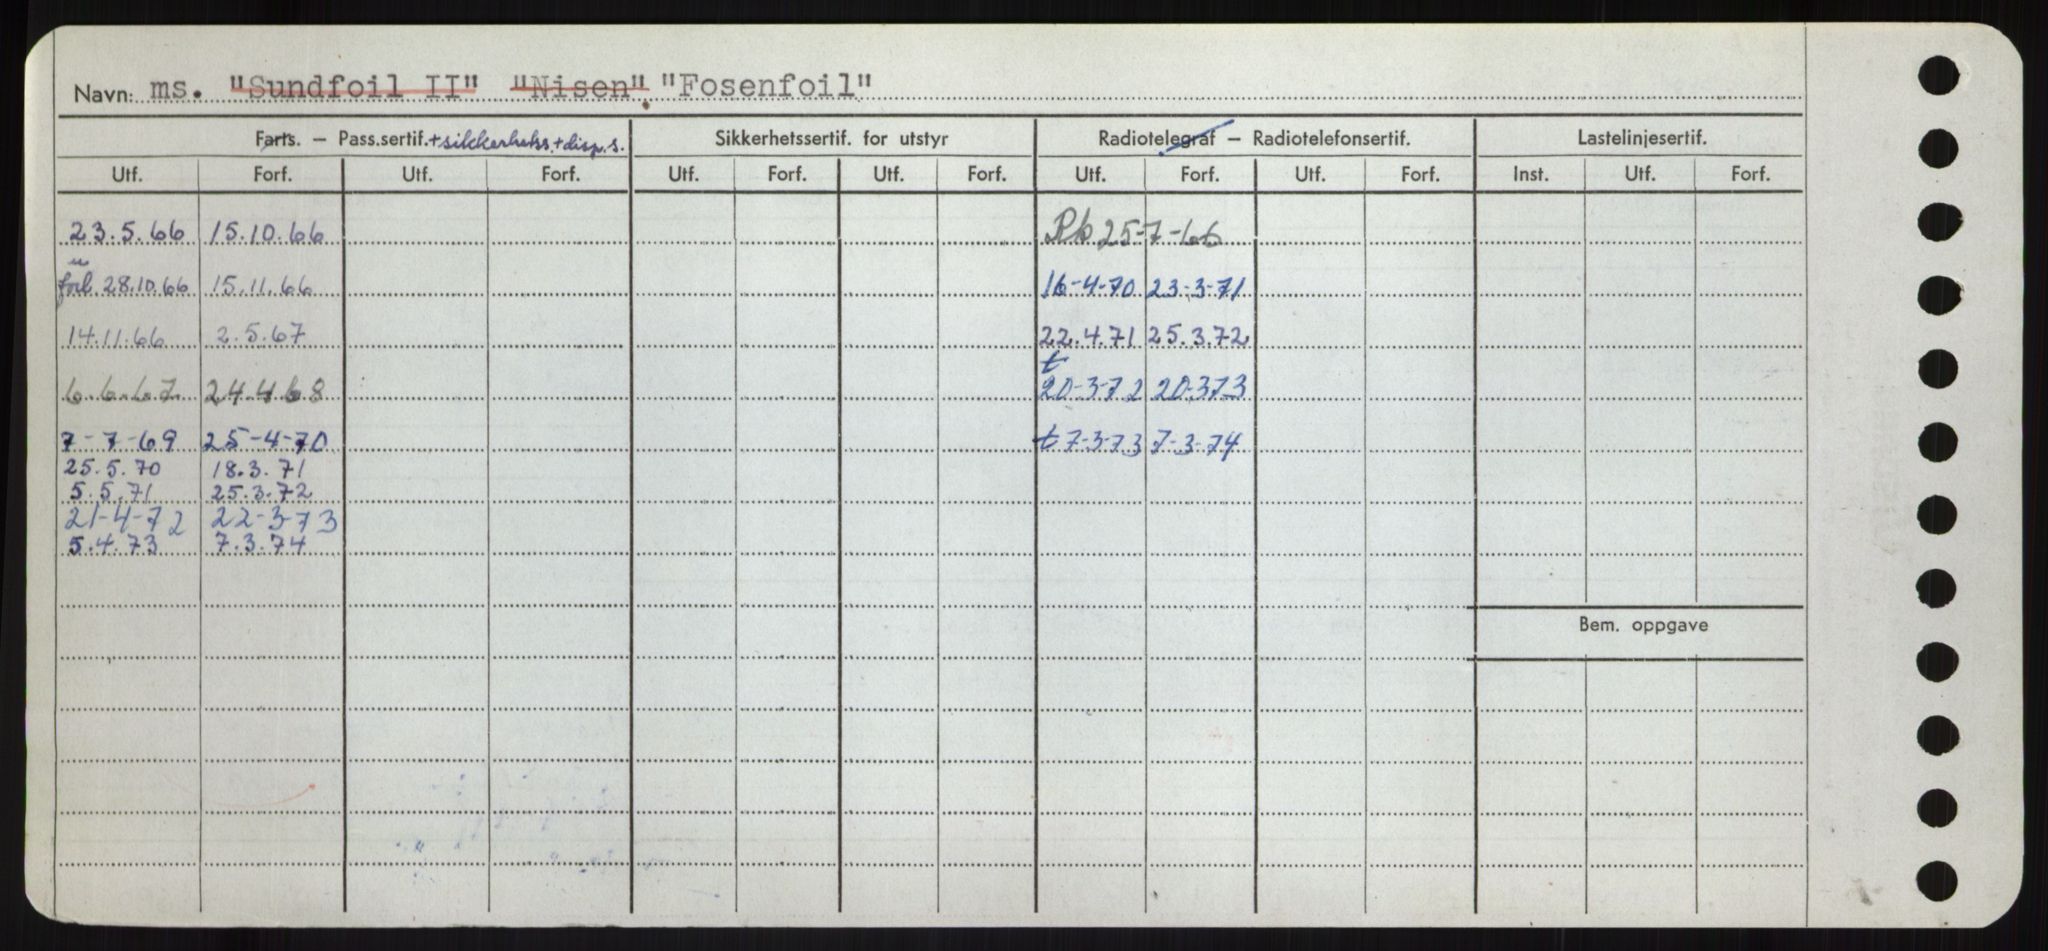 Navn: ms. "Sundfoil II" "Nisen". "Fosenfoil"
Farts. – Pass.sertif. +sikkerhets.+disp.s. Sikkerhetssertif. for utstyr Radiotelegraf – Radiotelefonsertif. Lastelinjesertif.
Utf. Forf. Utf. Forf. Utf. Forf. Utf. Forf. Utf. Forf. Utf. Forf. Inst. Utf. Forf.
23.5.66 15.10.66 Pb 25-7-66
forl. 28.10.66 15.11.66 16-4-70 23-3-71
14.11.66 2.5.67 22.4.71 25.3.72
t
6.6.67. 24.4.68 20-3-72 20-3.73
7-7-69 25-4-70 t 7-3-73 7-3-74
25.5.70 18.3.71
5.5.71 25.3.72
21-4-72 22-3-73
5.4.73 7.3.74
Bem. oppgave